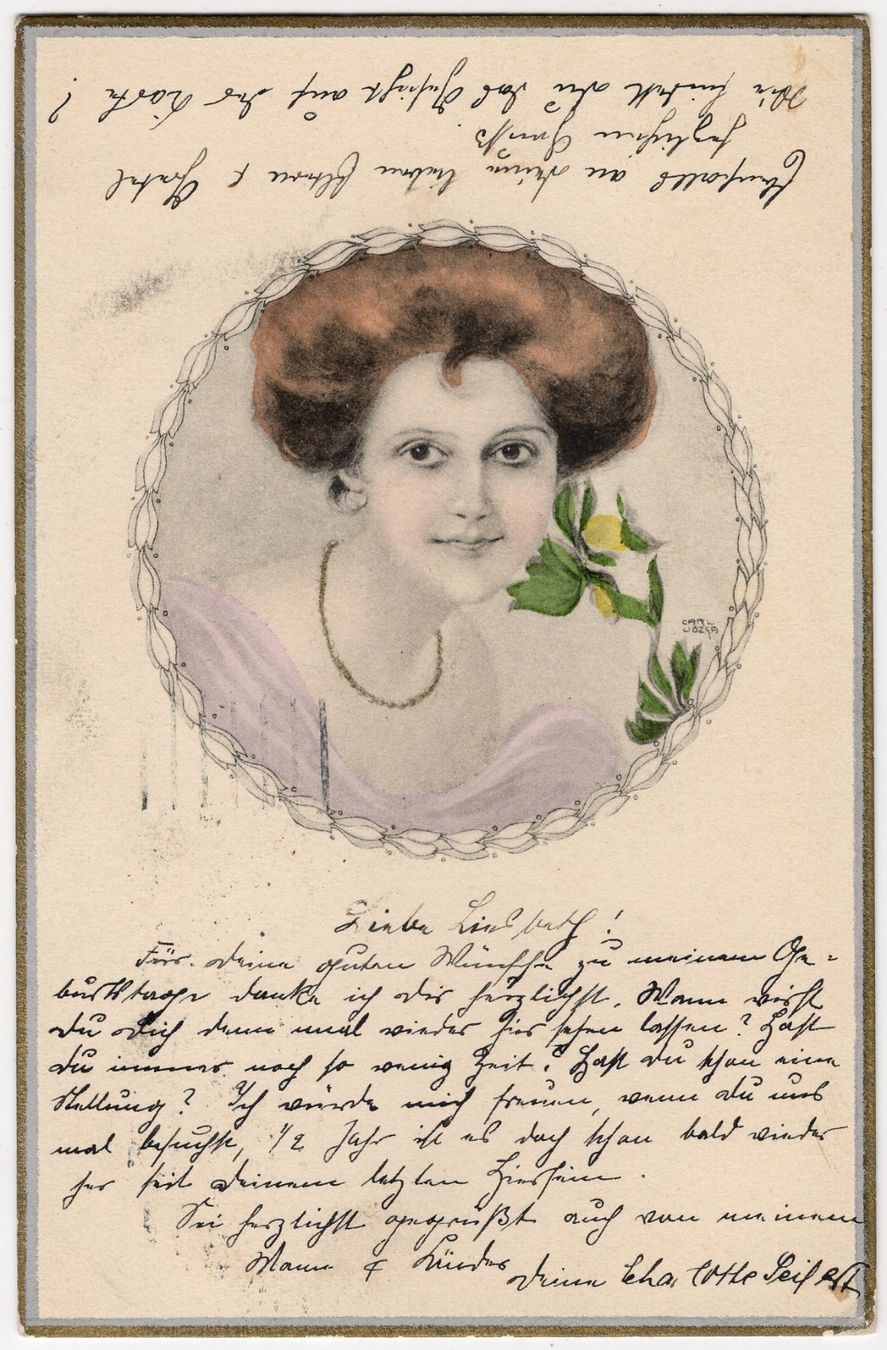 Liebe Liesbeth!
Für deine guten Wünsche zu meinem Ge-
burtstage danke ich dir herzlichst. Wann wirst
du dich denn mal wieder hier sehen lassen? Hast
du immer noch so wenig Zeit? Hast du schon eine
Stellung? Ich würde mich freuen, wenn du uns
mal besuchst, 1/2 Jahr ist es doch schon bald wieder
her seit deinem letzten Hiersein.
Sei herzlichst gegrüßt auch von meinem
Mann & Kinder
deine Charlotte Seifert
Ebenfalls an deine lieben Eltern & Gretel
herzlichen Gruss.
Wie findest du das Gesicht auf der Karte?
CARL
JOZSA